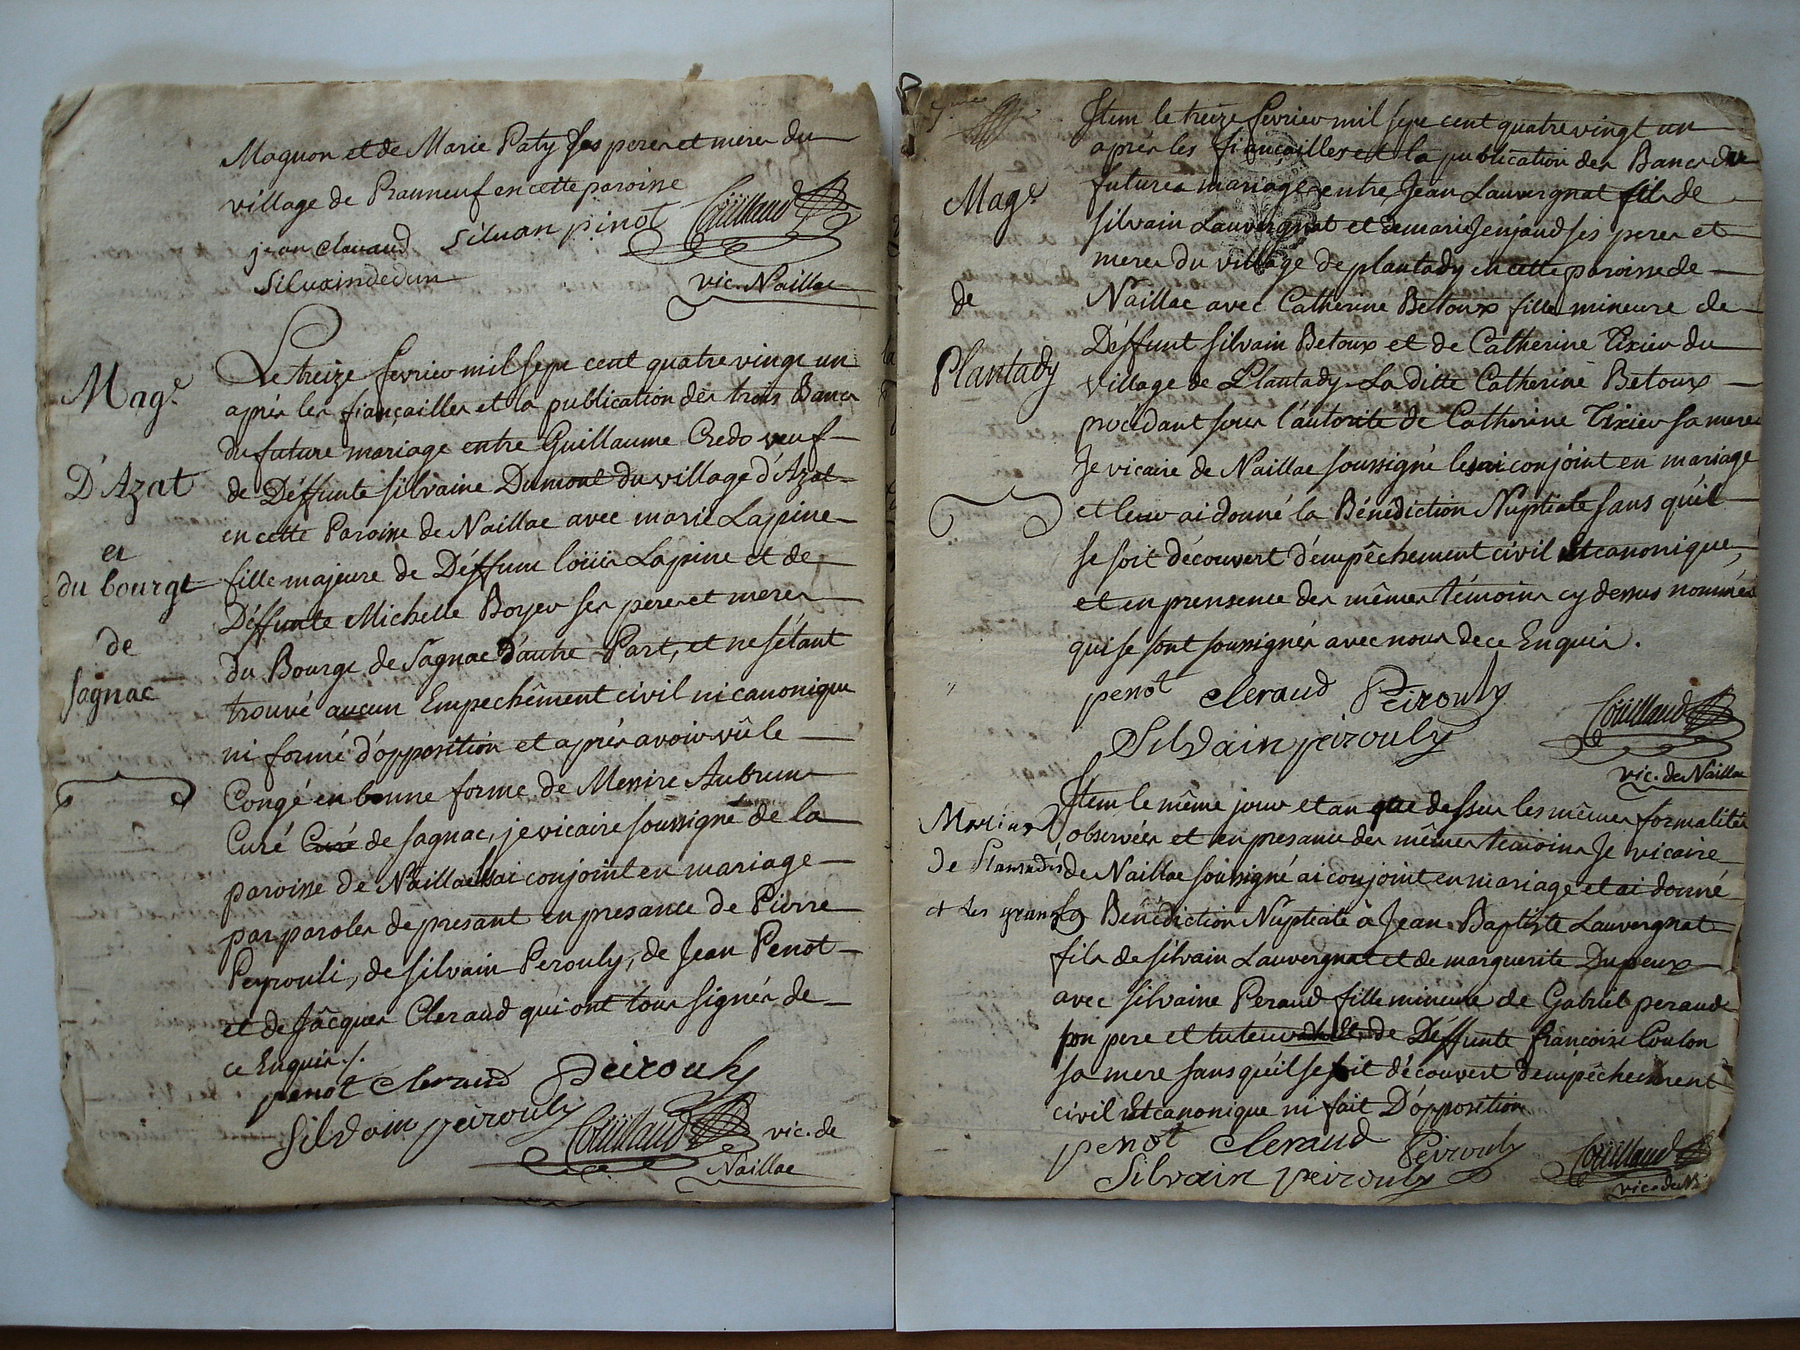 Magnon et de Marie Paty ses peres et meres du
village de Pranneuf en cette paroisse
jean clavaud silvan pinot Coüillaud
Silvain dedun vic. Naillac
Mag.e
D'Azat
et
du bourgt
de
sagnac
Le treize fevrier mil sept cent quatre vingt un
aprés les fiançailles et la publication des trois Bancs
du future mariage entre Guillaume Credo veuf
de Déffunte silvaine Dumont du village d'Azat
en cette Paroisse de Naillac avec marie Lapine
fille majeure de Déffunt loüis Lapine et de
Déffunte Michelle Boyer ses peres et meres
du Bourgt de Sagnac d'autre Part, et ne s'étant
trouvé aucun Empechêment civil ni canonique
ni formé d'opposition et aprés avoir vû le
Congé en bonne forme de Messire Aubrun
Curé Curé de sagnac, je vicaire soussigné de la
paroisse de Naillac les ai conjoint en mariage
par paroles de presant en presance de Pierre
Peyrouli, de silvain Perouly, de Jean Penot
et de Jâcques Cleraud qui ont tous signés de
ce Enquis ./.
penot Cleraud Peirouly
Silvain peirouly Coüillaud vic. de
Naillac
Mag.e
de
Plantady
Item le treize fevrier mil sept cent quatre vingt un
aprés les fiançailles et la publication des Bancs du
future mariage entre Jean Lauvergnat fils de
silvain Lauvergnat et de marie Jenjaud ses peres et
meres du village de plantady en cette paroisse de
Naillac avec Catherine Betoux fille mineure de
Déffunt silvain Betoux et de Catherine Tixier du
village de Plantady La ditte Catherine Betoux
procedant sous l'autorité de Catherine Tixier sa mere
Je vicaire de Naillac soussigné les ai conjoint en mariage
et leur ai donné la Bénédiction Nuptiale sans qu'il
se soit découvert d'émpêchement civil et canonique,
et en prensence des mêmes témoins cy dessus nommés
qui se sont soussignés avec nous de ce Enquis.
penot cleraud Peirouly
Silvain peirouly Coüillaud
vic. de Naillac
et des granges
Item le même jour et an que dessus les mêmes formalités
observées et en presance des mêmes témoins Je vicaire
de Naillac soussigné ai conjoint en mariage et ai donné
La Bénédiction Nuptiale à Jean Baptiste Lauvergnat
fils de silvain Lauvergnat et de marguerite Dupeux
avec silvaine Peraud fille mineure de Gabriel peraud
son pere et tuteur et de Déffunte françoise Coulon
sa mere sans qu'il se soit découvert d'empêchement
civil et canonique ni fait D'opposition
penot Cleraud Peirouly Coüillaud
Silvain peirouly vic. de N.